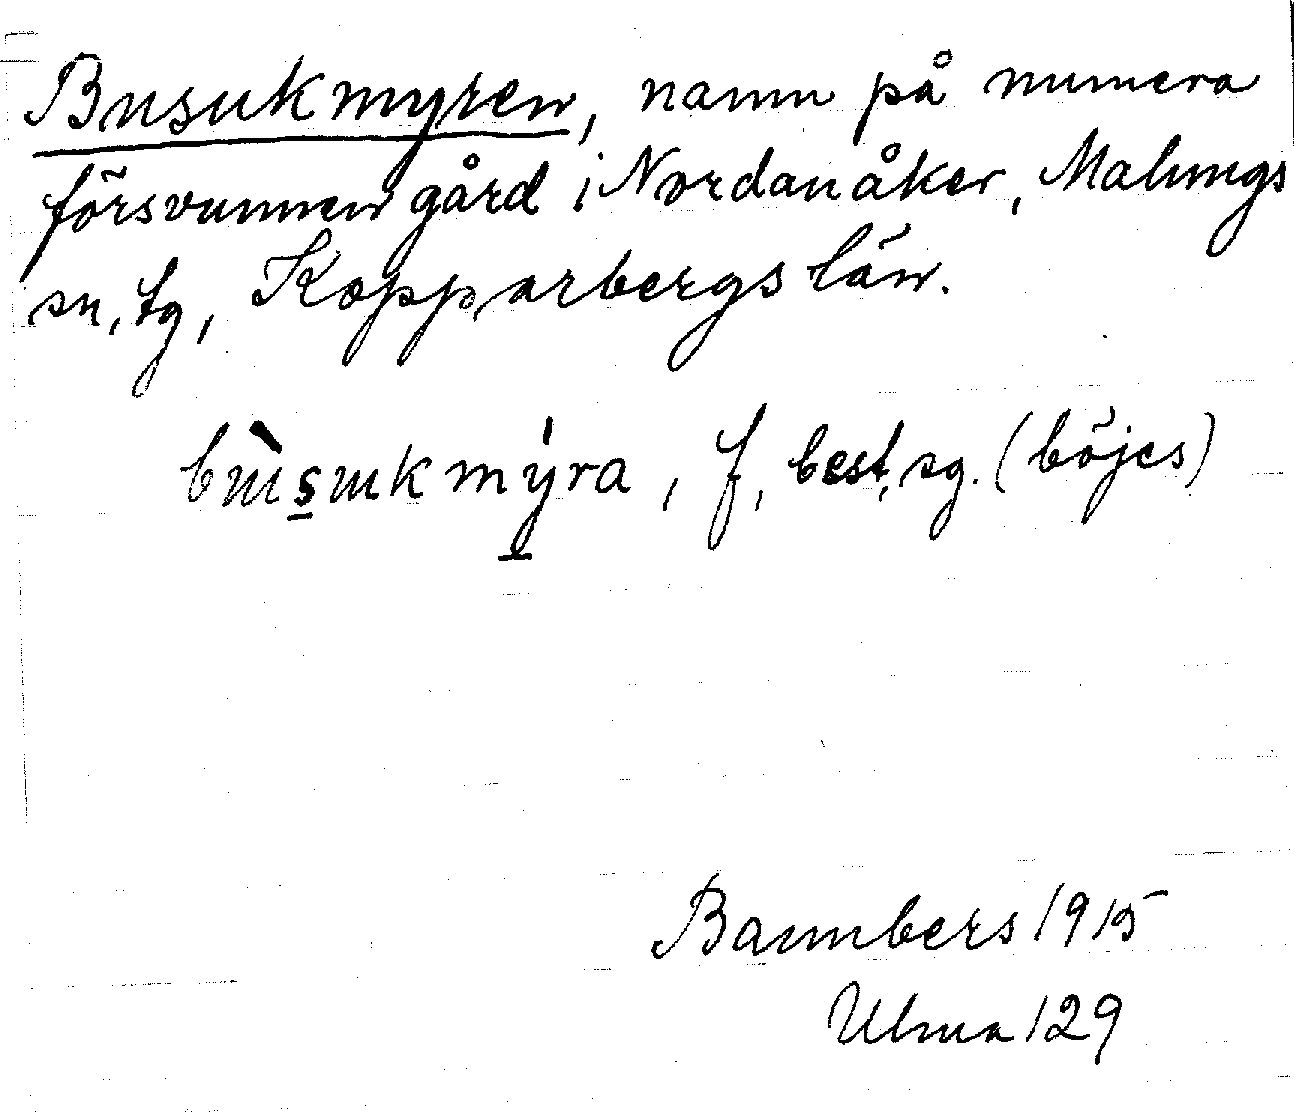 Busukmyren, namn på numera
försvunnen gård i Nordanåker, Malungs
sn, tg, Kopparbergs län.
f, best, sg. (böjes)
Bannbers 1915
Ulma 129